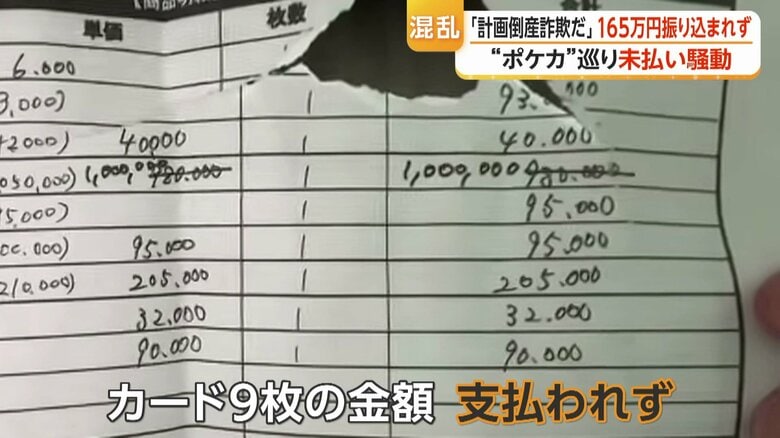 混乱 「計画倒産詐欺だ」165万円振り込まれず
“ポケカ”巡り未払い騒動
単価 枚数 合計
6.000
3,000) 1
42000) 40000 1 40.000
050,000) 1,000,000 980.000 1 1,000,000 980.000
95,000) 1 95.000
95.000 1 95.000
210,000) 205.000 1 205.000
32.000 1 32.000
90.000 1 90.000
カード9枚の金額 支払われず